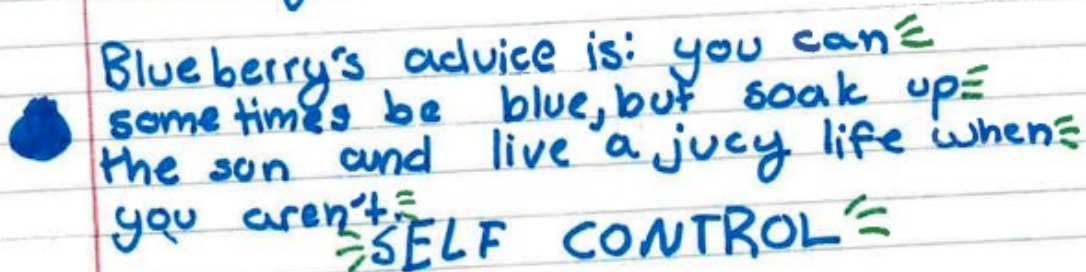 Blueberry's advice is: you can
sometimes be blue, but soak up
the sun and live a jucy life when
you aren't.
SELF CONTROL